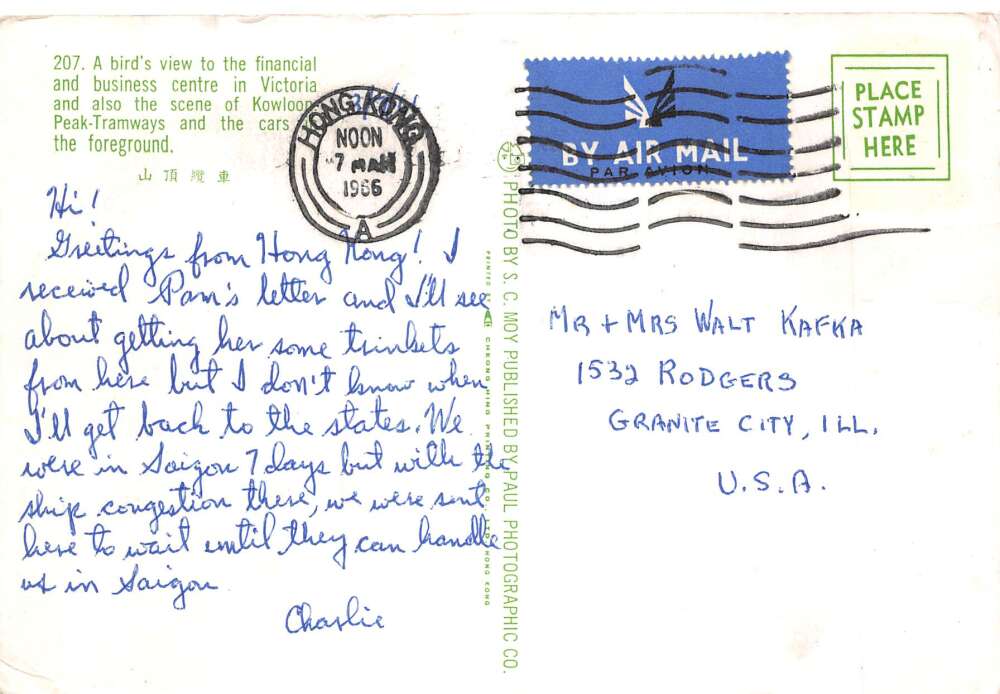 207. A bird's view to the financial
and business centre in Victoria
and also the scene of Kowloon
Peak-Tramways and the cars
the foreground.
山 頂 纜 車
HONG KONG
NOON
7 MAR
1966
A
BY AIR MAIL
PAR AVION
PLACE
STAMP
HERE
Hi!
Greetings from Hong Kong! I
received Pam's letter and I'll see
about getting her some trinkets
from here but I don't know when
I'll get back to the states. We
were in Saigon 7 days but with the
ship congestion there, we were sent
here to wait until they can handle
us in Saigon
Charlie
PHOTO BY S. C. MOY PUBLISHED BY PAUL PHOTOGRAPHIC CO.
PRINTED BY CHEONG MING PRINTING CO. HONG KONG
MR + MRS WALT KAFKA
1532 RODGERS
GRANITE CITY, ILL.
U.S.A.